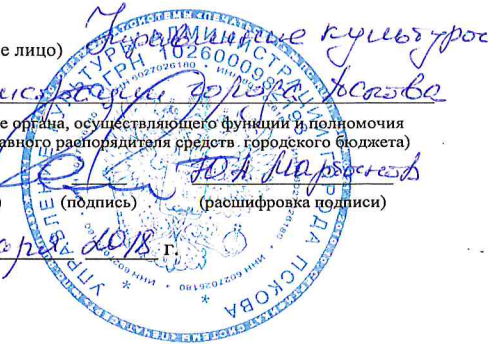 е лицо) Управление культуры
истрации города Пскова
е органа, осуществляющего функции и полномочия
авного распорядителя средств городского бюджета)
Ю.А.
) (подпись) (расшифровка подписи)
аря 2018 г.
УПРАВЛЕНИЕ КУЛЬТУРЫ АДМИНИСТРАЦИИ ГОРОДА ПСКОВА
ИНН 6027026180